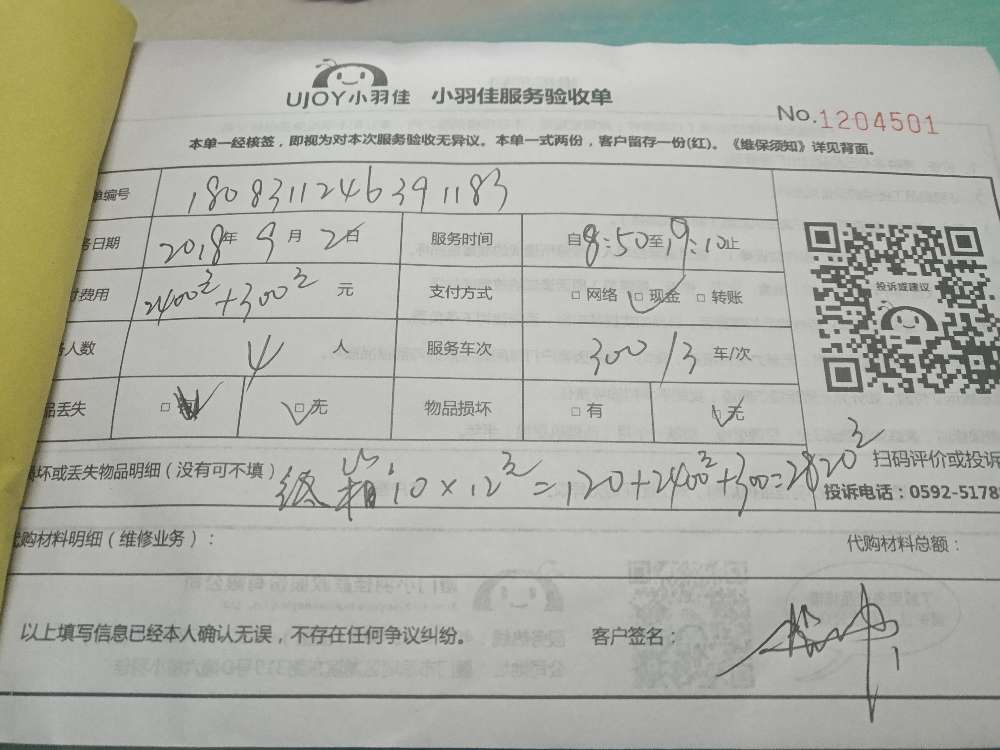 UJOY小羽佳 小羽佳服务验收单
No.1204501
本单一经核签，即视为对本次服务验收无异议。本单一式两份，客户留存一份(红)。《维保须知》详见背面。
单编号 1808311246391183
务日期 2018年9月2日 服务时间 自8:50至19:10止
费用 2400元+300元 元 支付方式 □网络 □现金 □转账
投诉或建议
人数 4 人 服务车次 300/3 车/次
品丢失 □有 □无 物品损坏 □有 □无
损坏或丢失物品明细（没有可不填） 纸箱10×12元=120+2400元+300=2820元
扫码评价或投诉
投诉电话：0592-5178
代购材料明细（维修业务）： 代购材料总额：
以上填写信息已经本人确认无误，不存在任何争议纠纷。 客户签名：